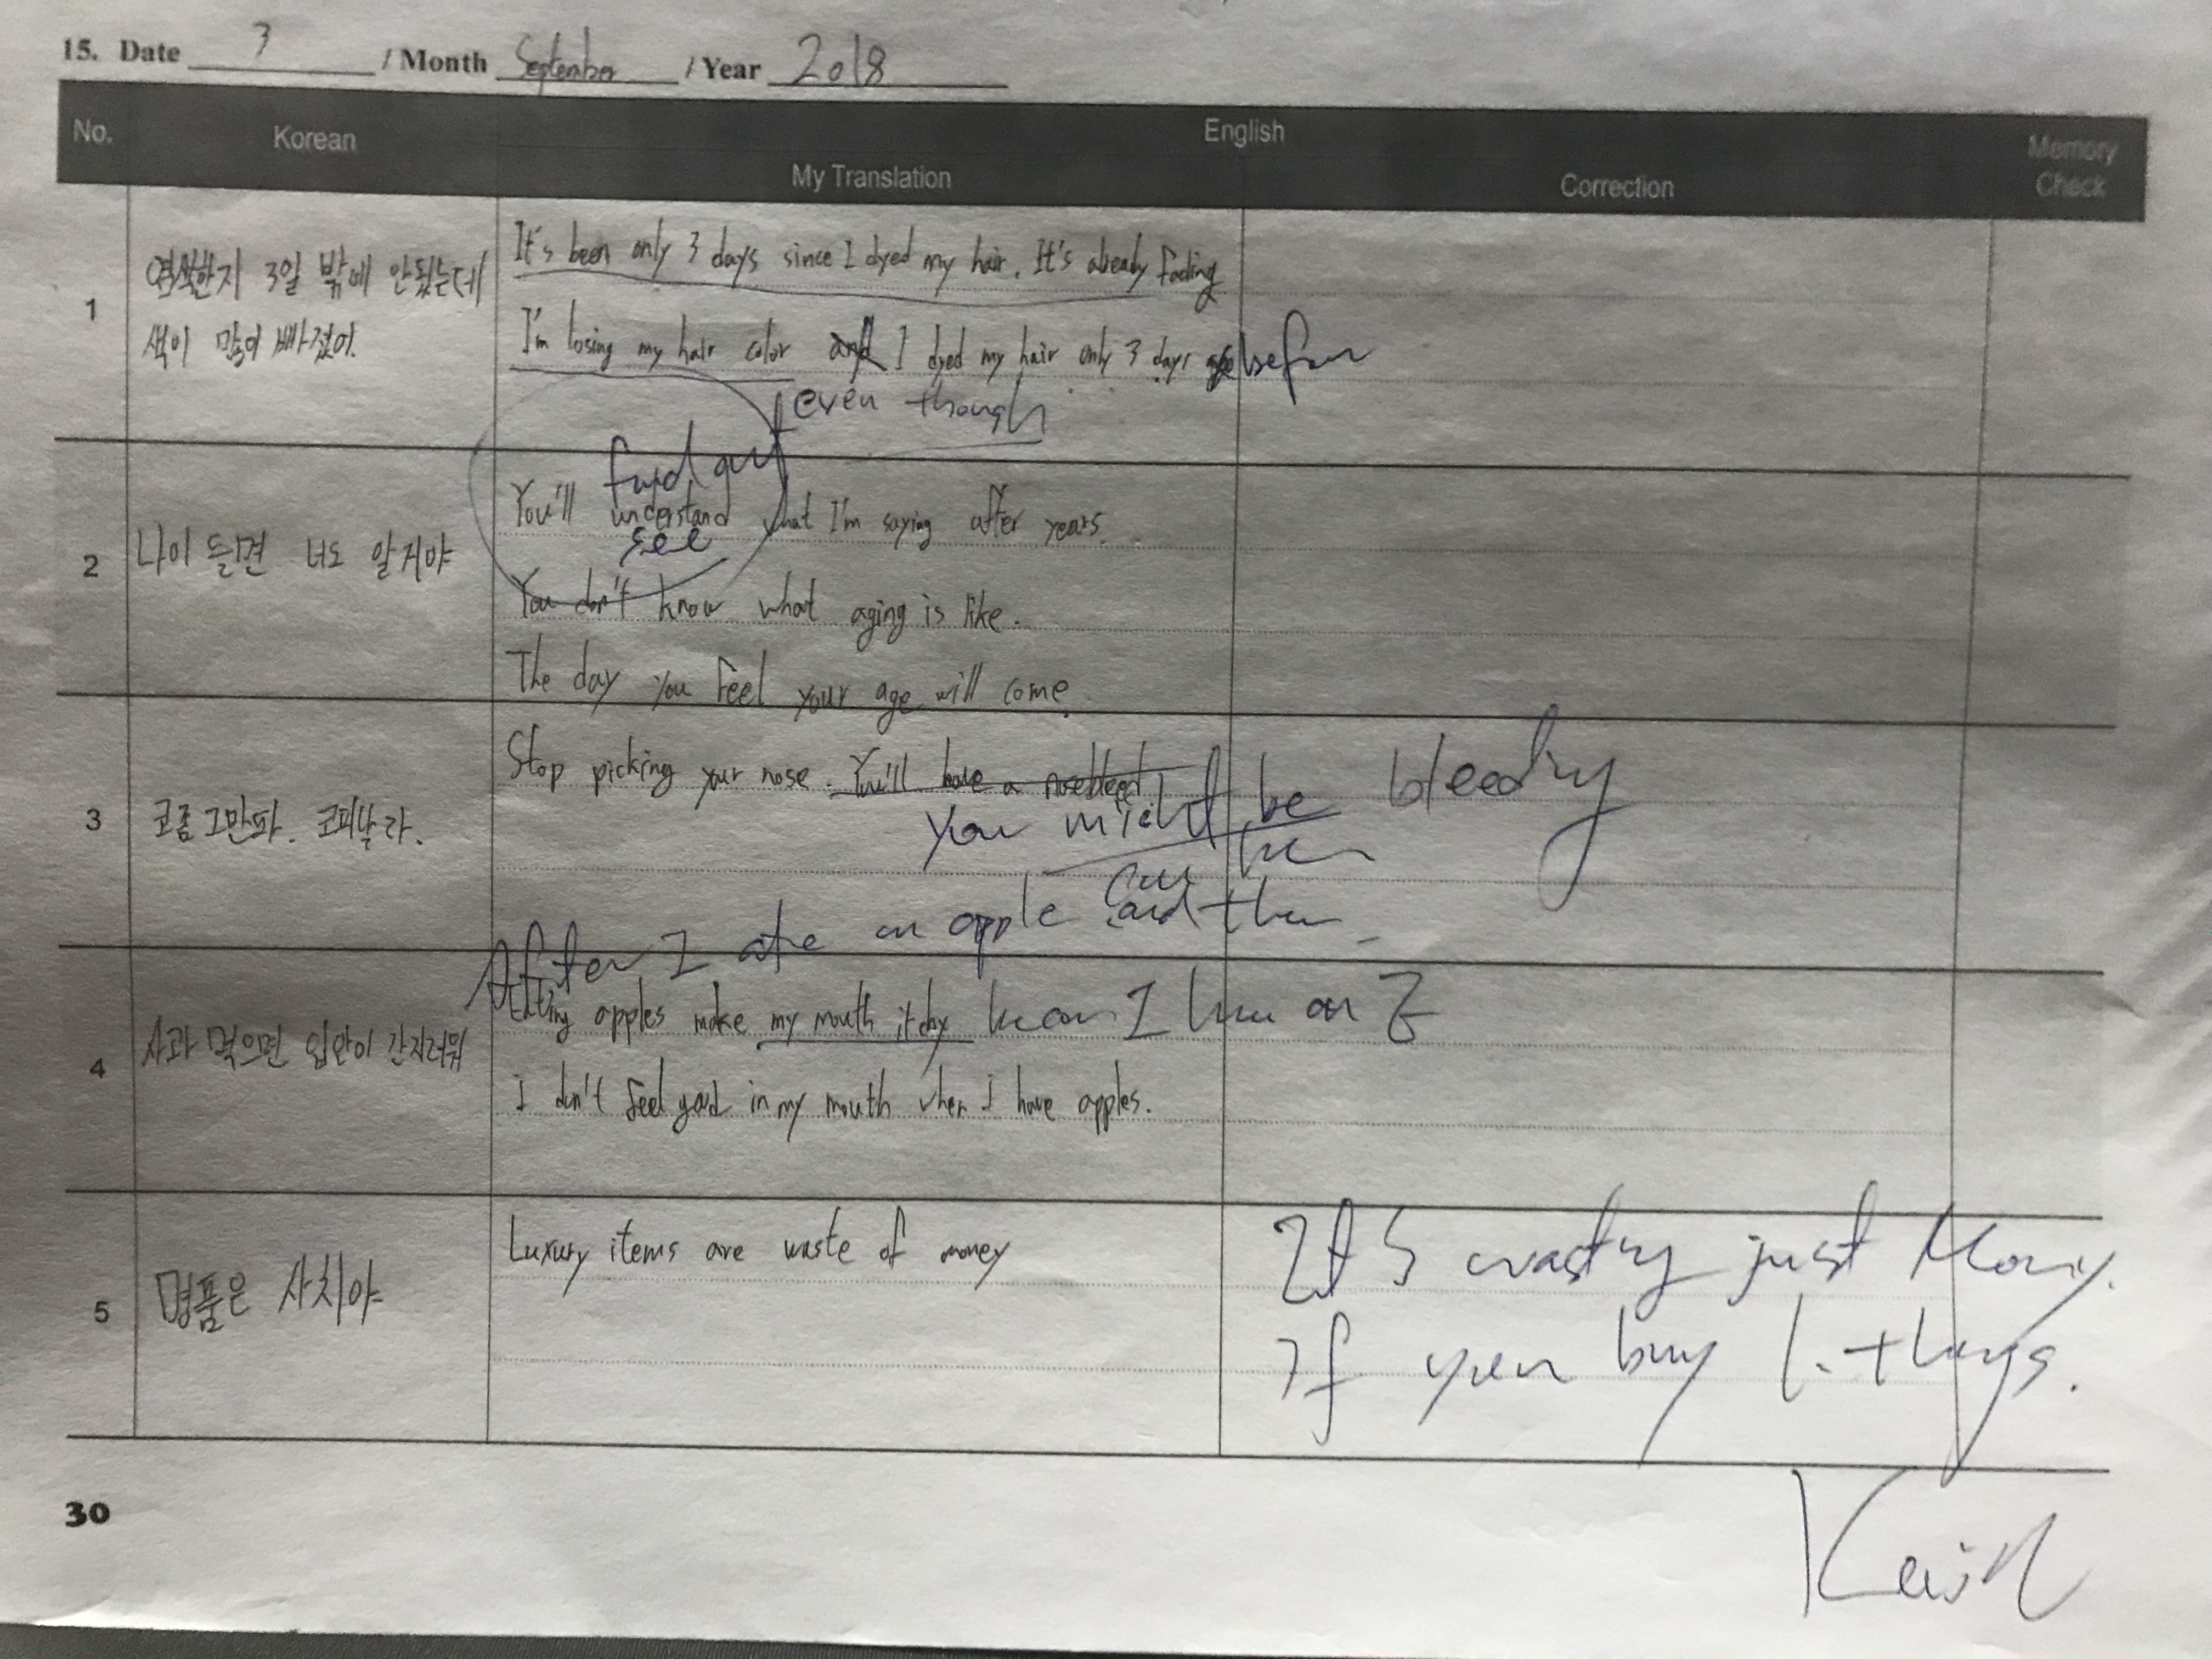 15. Date 3 / Month September / Year 2018
No. Korean English Memory Check
My Translation Correction
1
염색한지 3일 밖에 안됬는데
색이 많이 빠졌어.
It's been only 3 days since I dyed my hair. It's already fading
I'm losing my hair color and I dyed my hair only 3 days ago before
even though
2
나이 들면 너도 알거야
find out
You'll understand what I'm saying after years.
see
You don't know what aging is like.
The day you feel your age will come.
3
코좀 그만파. 코피날라.
Stop picking your nose. You'll have a nosebleed
You might be bleeding
After I ate an apple and then
4
사과 먹으면 입안이 간지러워
Eating apples make my mouth itchy I
i don't feel good in my mouth when i have apples.
5
명품은 사치야
Luxury items are waste of money
It's wasting just Money.
If you buy l. things.
30
Kevin